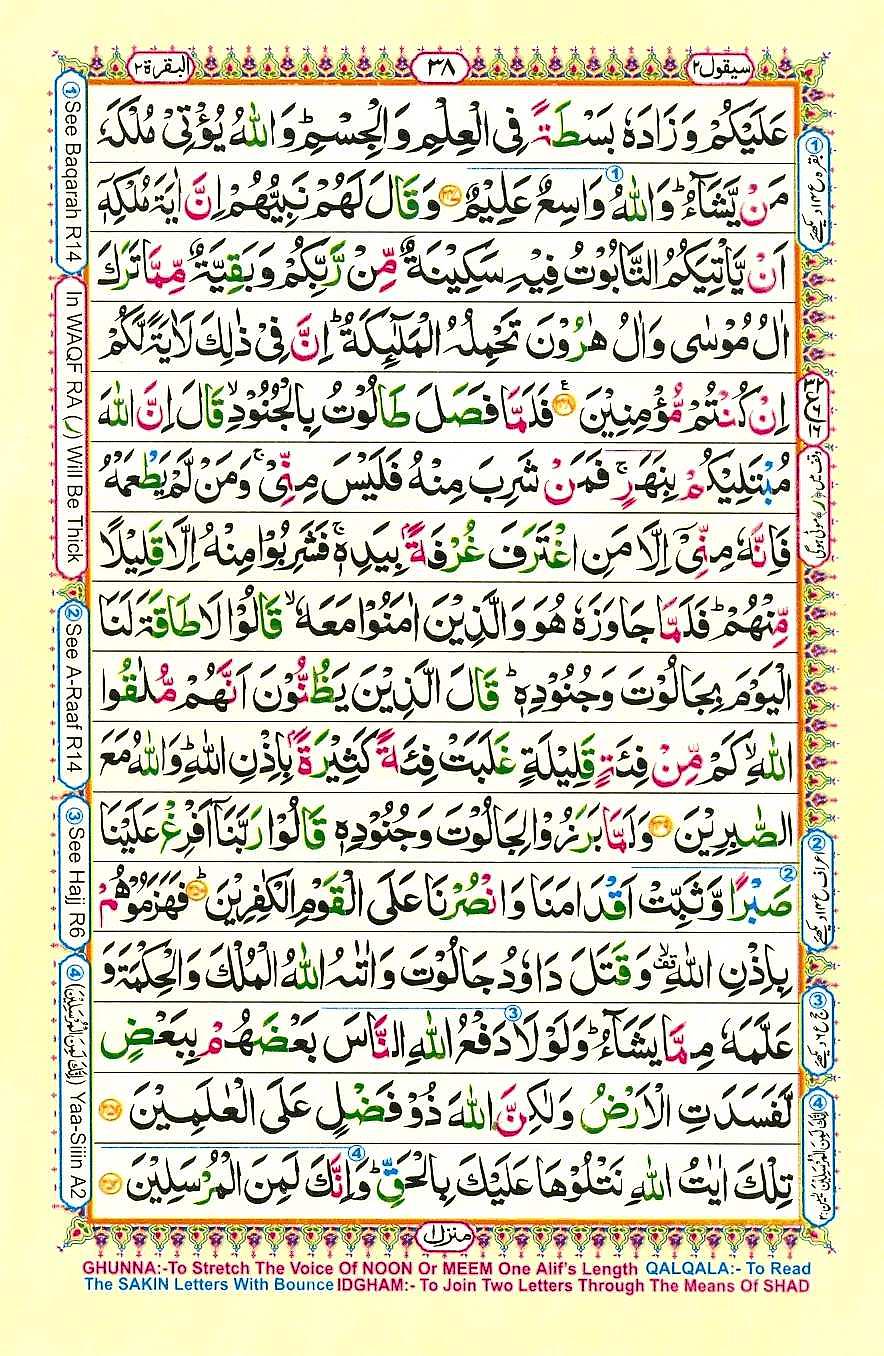 سيقول٢
٣٨
البقرة٢
عَلَيْكُمْ وَزَادَهٗ بَسْطَةً فِى الْعِلْمِ وَالْجِسْمِ ؕ وَاللّٰهُ يُؤْتِىْ مُلْكَهٗ
مَنْ يَّشَآءُ ؕ وَاللّٰهُ وَاسِعٌ عَلِيْمٌ ﴿۲۴۷﴾ وَقَالَ لَهُمْ نَبِيُّهُمْ اِنَّ اٰيَةَ مُلْكِهٖۤ
اَنْ يَّاْتِيَكُمُ التَّابُوْتُ فِيْهِ سَكِيْنَةٌ مِّنْ رَّبِّكُمْ وَبَقِيَّةٌ مِّمَّا تَرَكَ
اٰلُ مُوْسٰى وَاٰلُ هٰرُوْنَ تَحْمِلُهُ الْمَلٰٓئِكَةُ ؕ اِنَّ فِىْ ذٰلِكَ لَاٰيَةً لَّكُمْ
اِنْ كُنْتُمْ مُّؤْمِنِيْنَ ﴿۲۴۸﴾ فَلَمَّا فَصَلَ طَالُوْتُ بِالْجُنُوْدِ ۙ قَالَ اِنَّ اللّٰهَ
مُبْتَلِيْكُمْ بِنَهَرٍ ۚ فَمَنْ شَرِبَ مِنْهُ فَلَيْسَ مِنِّىْ ۚ وَمَنْ لَّمْ يَطْعَمْهُ
فَاِنَّهٗ مِنِّىْۤ اِلَّا مَنِ اغْتَرَفَ غُرْفَةًۢ بِيَدِهٖ ۚ فَشَرِبُوْا مِنْهُ اِلَّا قَلِيْلًا
مِّنْهُمْ ؕ فَلَمَّا جَاوَزَهٗ هُوَ وَالَّذِيْنَ اٰمَنُوْا مَعَهٗ ۙ قَالُوْا لَا طَاقَةَ لَنَا
الْيَوْمَ بِجَالُوْتَ وَجُنُوْدِهٖ ؕ قَالَ الَّذِيْنَ يَظُنُّوْنَ اَنَّهُمْ مُّلٰقُوا
اللّٰهِ ۙ كَمْ مِّنْ فِئَةٍ قَلِيْلَةٍ غَلَبَتْ فِئَةً كَثِيْرَةًۢ بِاِذْنِ اللّٰهِ ؕ وَاللّٰهُ مَعَ
الصّٰبِرِيْنَ ﴿۲۴۹﴾ وَلَمَّا بَرَزُوْا لِجَالُوْتَ وَجُنُوْدِهٖ قَالُوْا رَبَّنَاۤ اَفْرِغْ عَلَيْنَا
صَبْرًا وَّثَبِّتْ اَقْدَامَنَا وَانْصُرْنَا عَلَى الْقَوْمِ الْكٰفِرِيْنَ ﴿۲۵۰﴾ؕ فَهَزَمُوْهُمْ
بِاِذْنِ اللّٰهِ ۙ قف وَقَتَلَ دَاوٗدُ جَالُوْتَ وَاٰتٰىهُ اللّٰهُ الْمُلْكَ وَالْحِكْمَةَ وَ
عَلَّمَهٗ مِمَّا يَشَآءُ ؕ وَلَوْلَا دَفْعُ اللّٰهِ النَّاسَ بَعْضَهُمْ بِبَعْضٍ
لَّفَسَدَتِ الْاَرْضُ وَلٰكِنَّ اللّٰهَ ذُوْ فَضْلٍ عَلَى الْعٰلَمِيْنَ ﴿۲۵۱﴾
تِلْكَ اٰيٰتُ اللّٰهِ نَتْلُوْهَا عَلَيْكَ بِالْحَقِّ ؕ وَاِنَّكَ لَمِنَ الْمُرْسَلِيْنَ ﴿۲۵۲﴾
منزل١
① See Baqarah R14
In WAQF RA (ر) Will Be Thick
② See A-Raaf R14
③ See Hajj R6
④ (اِنَّكَ لَمِنَ الْمُرْسَلِيْنَ) Yaa-Siiin A2
GHUNNA:-To Stretch The Voice Of NOON Or MEEM One Alif's Length QALQALA:- To Read
The SAKIN Letters With Bounce IDGHAM:- To Join Two Letters Through The Means Of SHAD